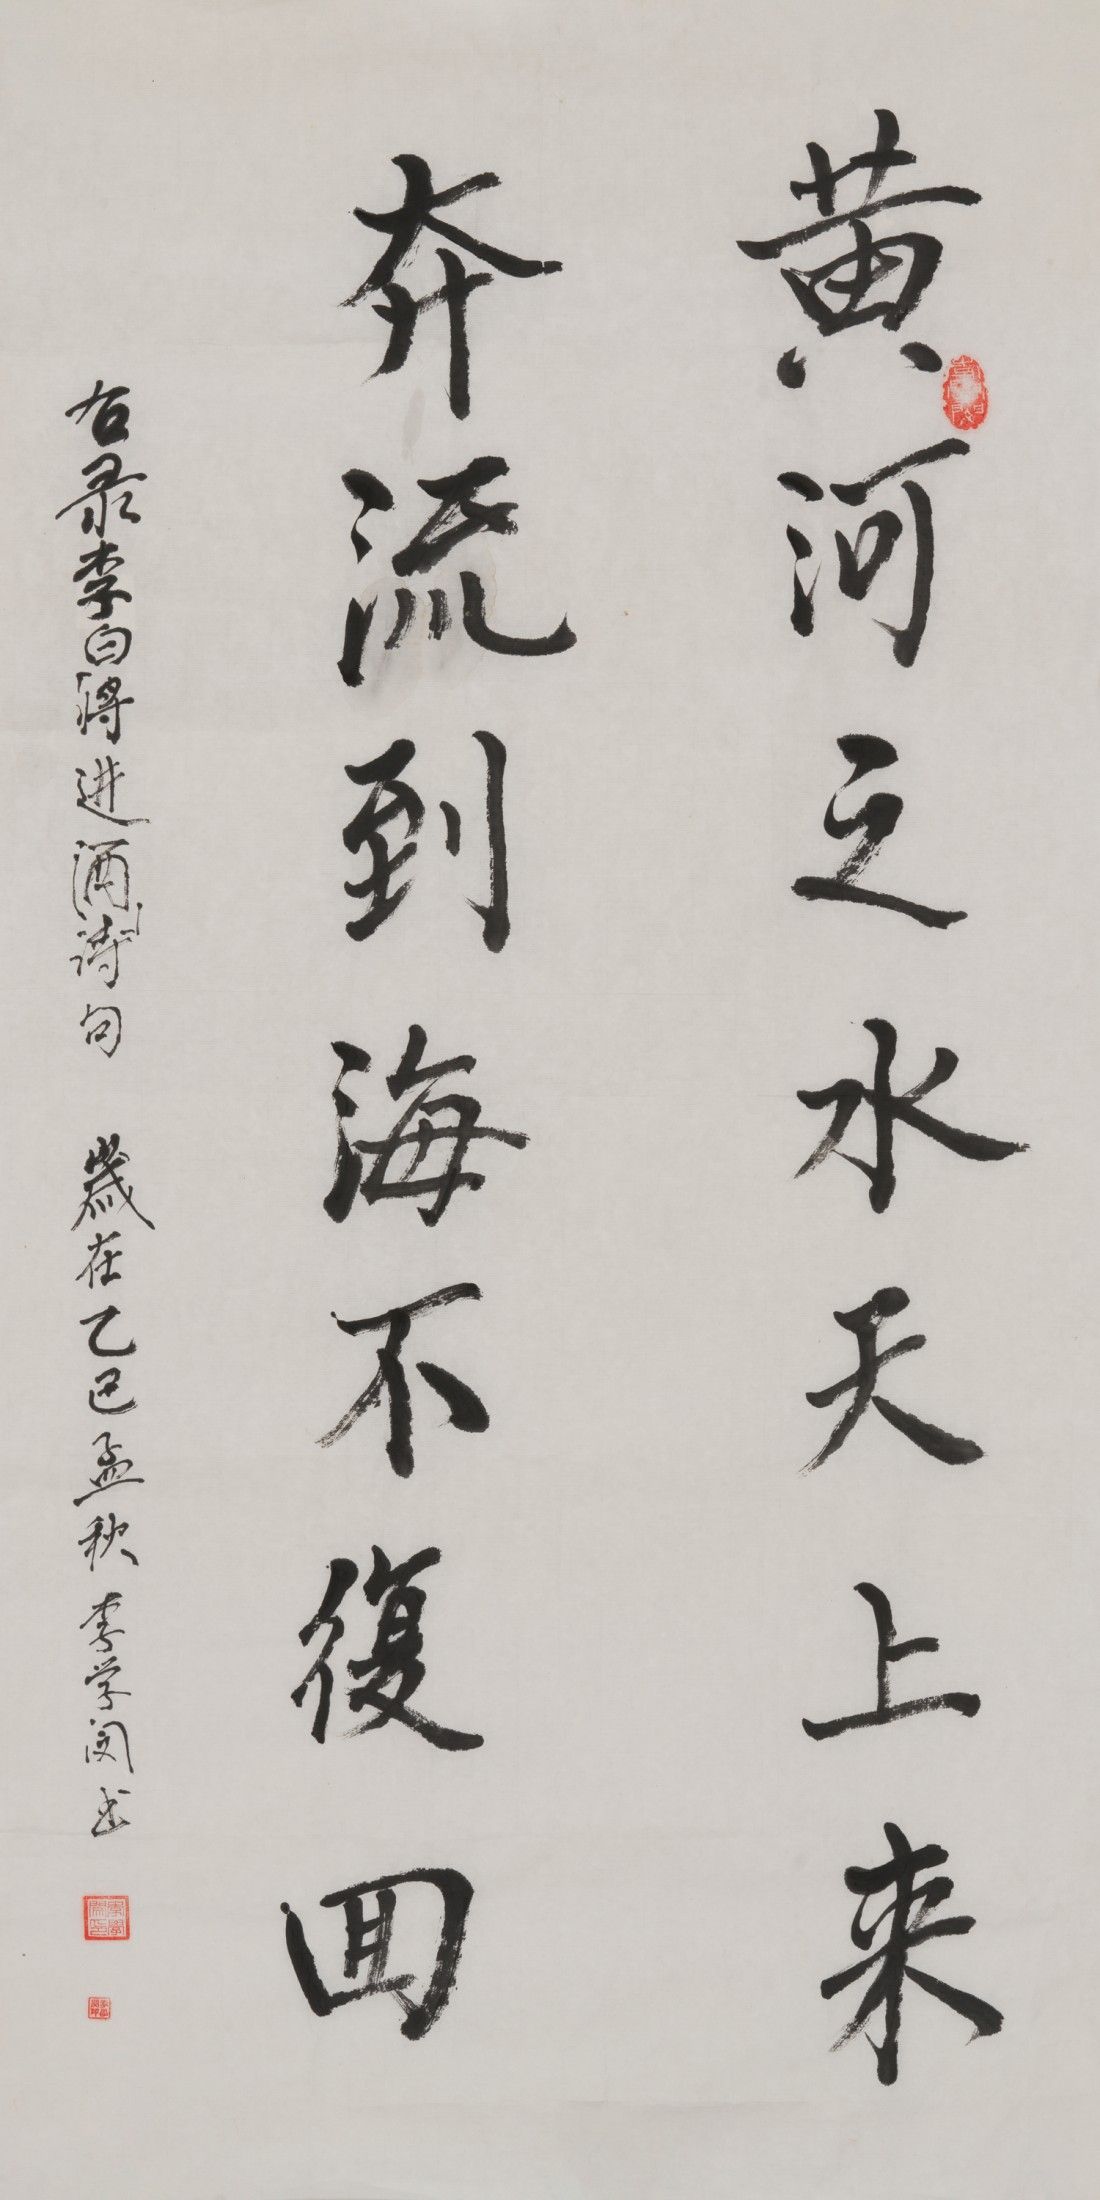 黄河之水天上来
奔流到海不復回
右录李白将进酒诗句 歲在乙巳孟秋 李学闵书